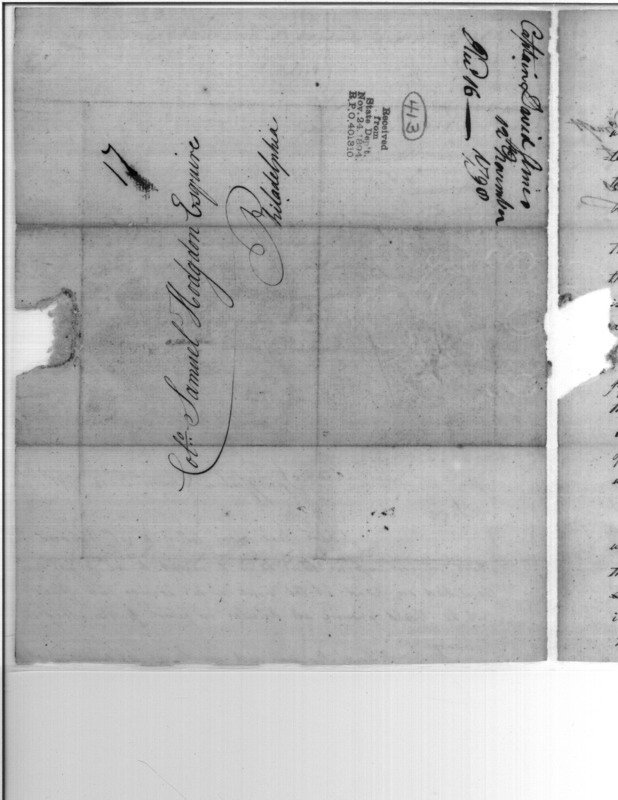 Captain David Ames
12th November
Recd 16 — 1790
413
Received
from
State Dep't.
Nov. 24, 1894
R.P.O. 401310
17
Colo. Samuel Hodgdon Esquire
Philadelphia